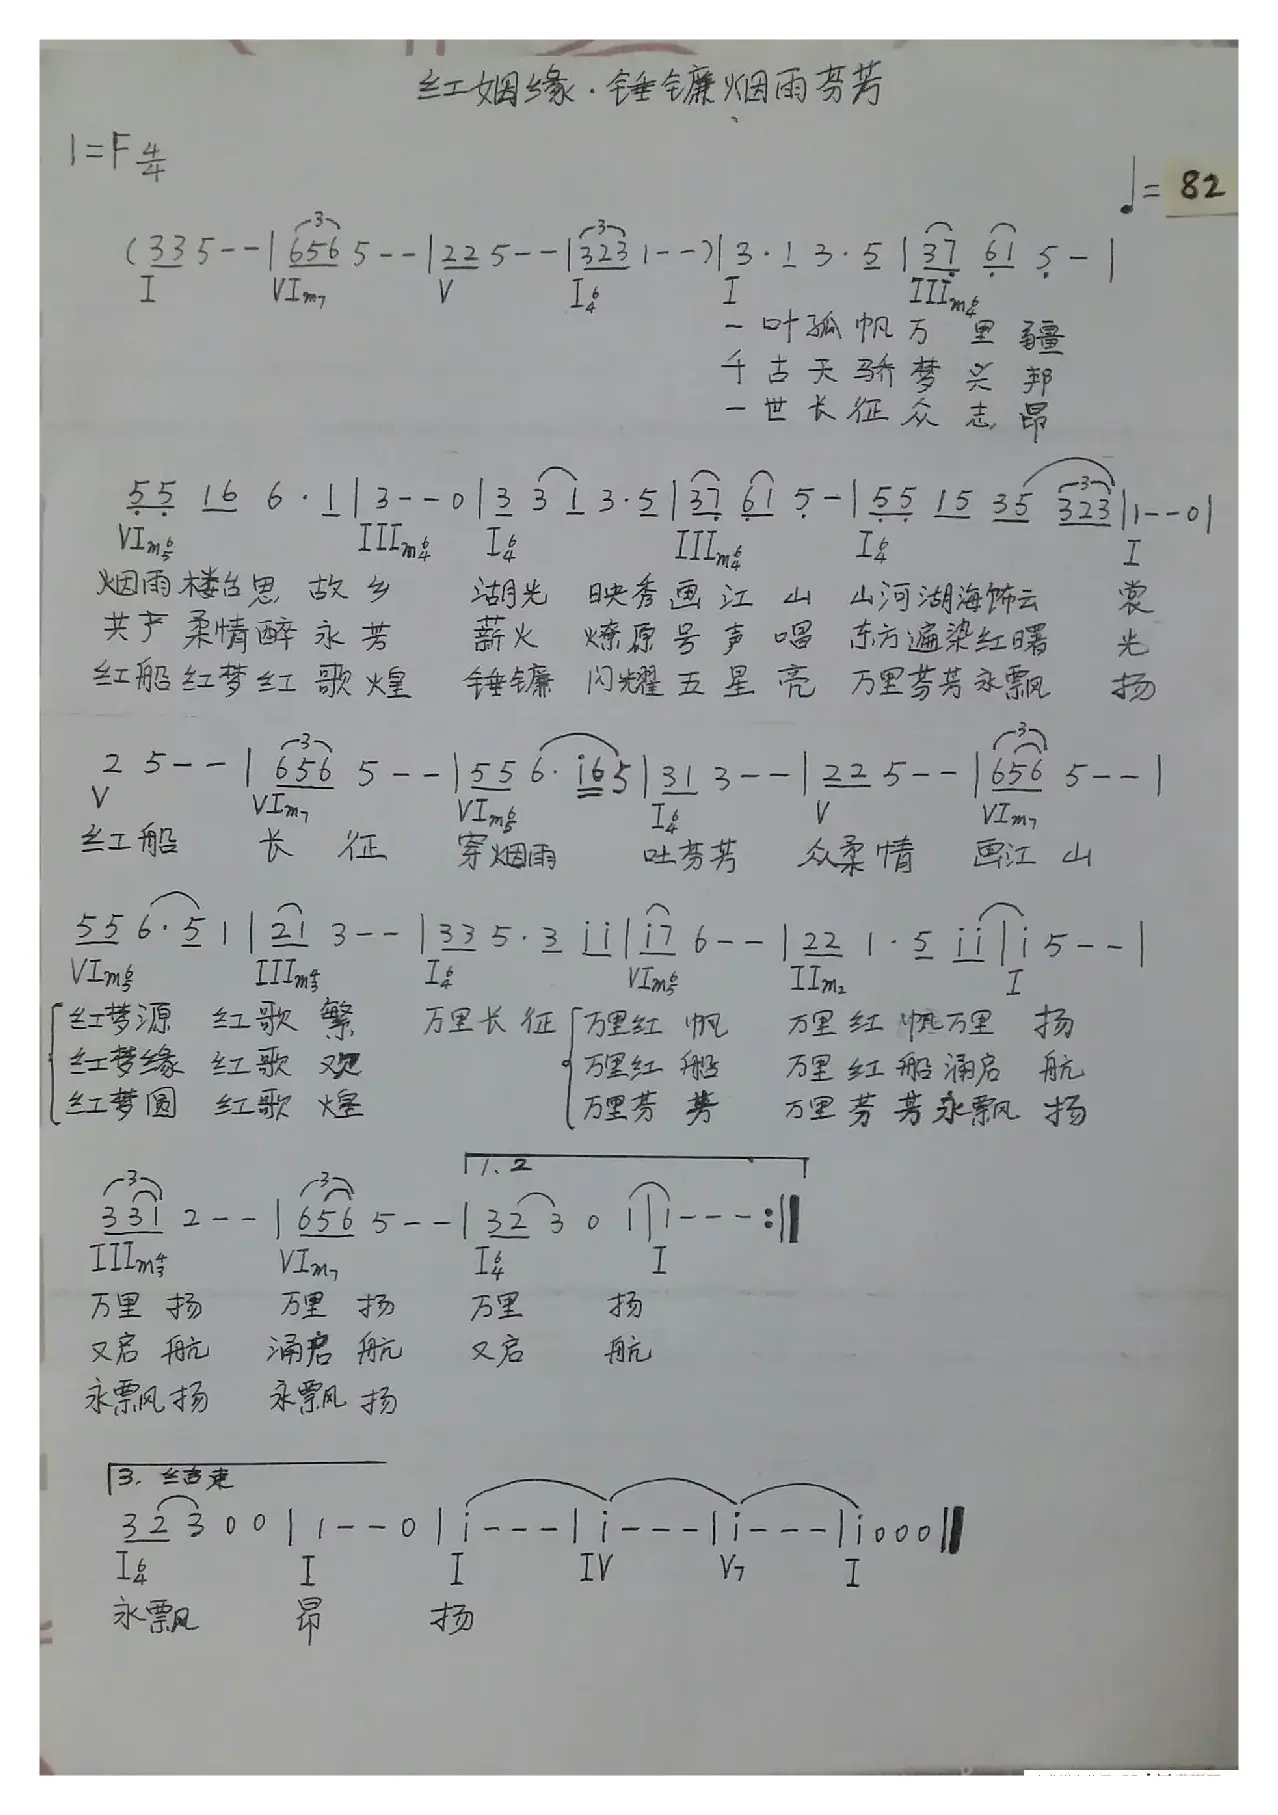 红姻缘·锤镰烟雨芬芳
1=F 4/4
♩= 82
(3 3 5 - - | 6 5 6 5 - - | 2 2 5 - - | 3 2 3 1 - - ) | 3 · 1 3 · 5 | 3 7 6 1 5 - |
I VIm7 V I6/4 I IIIm6/4
一叶孤帆万里疆
千古天骄梦兴邦
一世长征众志昂
5 5 1 6 6 · 1 | 3 - - 0 | 3 3 1 3 · 5 | 3 7 6 1 5 - | 5 5 1 5 3 5 3 2 3 | 1 - - 0 |
VIm6/5 IIIm6/4 I6/4 IIIm6/4 I6/4 I
烟雨楼台思故乡 湖光映秀画江山 山河湖海饰云裳
共产柔情醉永芳 薪火燎原号声唱 东方遍染红曙光
红船红梦红歌煌 锤镰闪耀五星亮 万里芬芳永飘扬
2 5 - - | 6 5 6 5 - - | 5 5 6 · i 6 5 | 3 1 3 - - | 2 2 5 - - | 6 5 6 5 - - |
V VIm7 VIm6/5 I6/4 V VIm7
红船 长征 穿烟雨 吐芬芳 众柔情 画江山
5 5 6 · 5 1 | 2 1 3 - - | 3 3 5 · 3 i i | i 7 6 - - | 2 2 1 · 5 i i | i 5 - - |
VIm6/5 IIIm4/3 I6/4 VIm6/5 IIm2 I
红梦源 红歌繁 万里长征 万里红帆 万里红帆万里扬
红梦缘 红歌欢 万里红船 万里红船涌启航
红梦圆 红歌煌 万里芬芳 万里芬芳永飘扬
1. 2
3 3 1 2 - - | 6 5 6 5 - - | 3 2 3 0 1 | 1 - - - :||
IIIm4/3 VIm7 I6/4 I
万里扬 万里扬 万里 扬
又启航 涌启航 又启 航
永飘扬 永飘扬
3. 结束
3 2 3 0 0 | 1 - - 0 | i - - - | i - - - | i - - - | i 0 0 0 ||
I6/4 I I IV V7 I
永飘 昂 扬